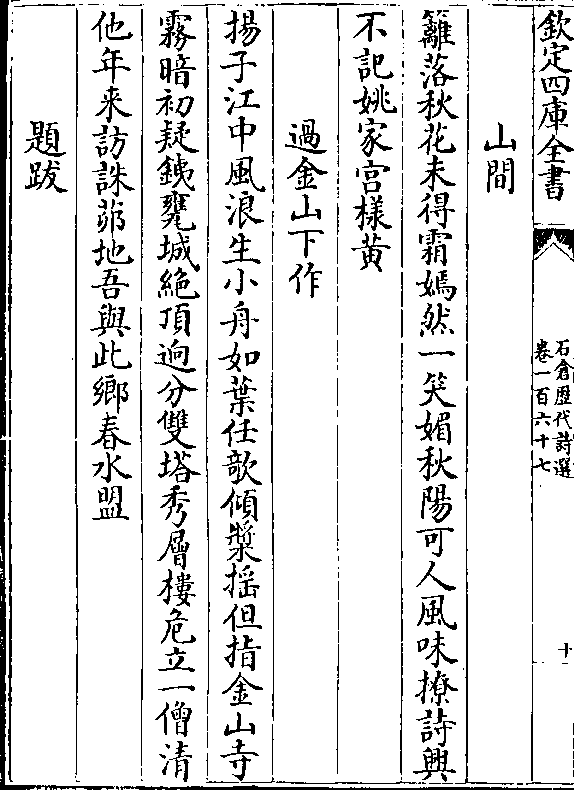 欽定四庫全書
石倉歴代詩選
卷一百六十七
十
山間
籬落秋花未得霜嫣然一笑媚秋陽可人風味撩詩興
不記姚家宫様黄
過金山下作
揚子江中風浪生小舟如葉任欹傾槳揺但指金山寺
霧暗初疑鐵甕城絶頂逈分雙塔秀層樓危立一僧清
他年来訪誅茆地吾與此鄉春水盟
題跋